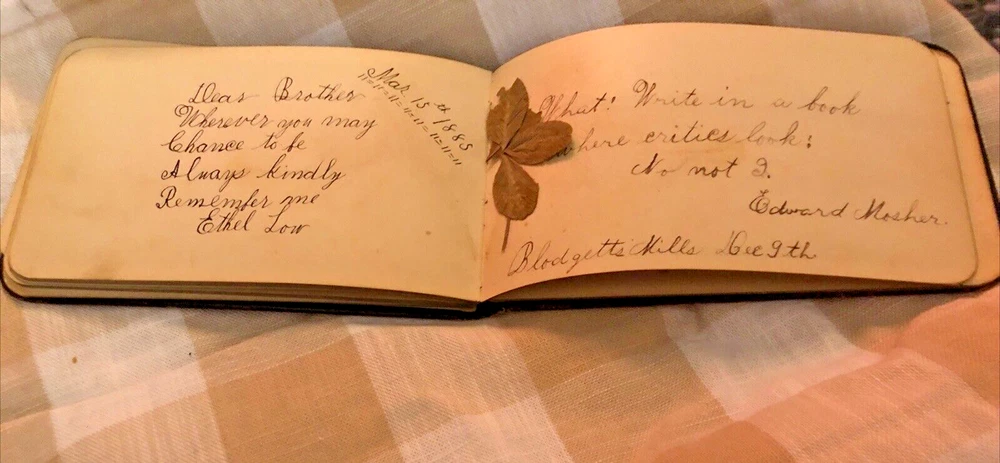 Mar 15th 1885
11=11=11=11=11=11=11=11=11
Dear Brother
Wherever you may
Chance to be
Always kindly
Remember me
Ethel Low
What! Write in a book
where critics look;
No not I.
Edward Mosher.
Blodgetts Mills Dec 9th